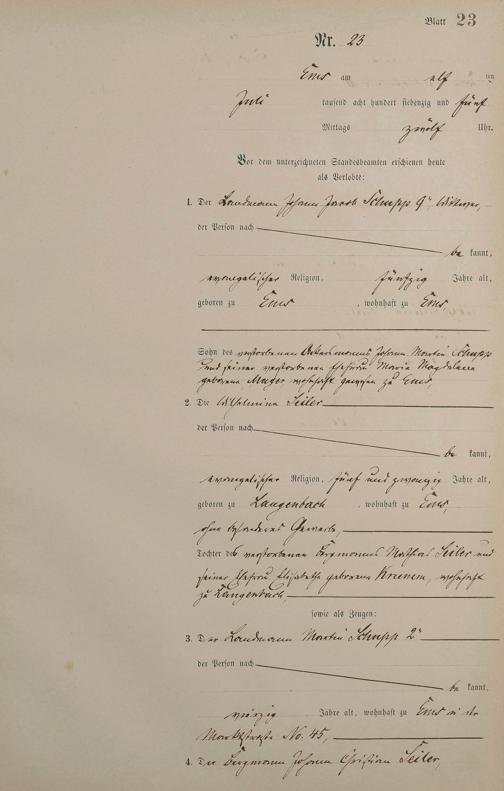 Blatt 23
Nr. 23
Ems am elf ten
Juli tausend acht hundert siebenzig und fünf
Mittags zwölf Uhr.
Vor dem unterzeichneten Standesbeamten erschienen heute
als Verlobte:
1. Der Landmann Johann Jacob Schupp 9r Wittwer,
der Person nach
be kannt,
evangelischer Religion, fünfzig Jahre alt,
geboren zu Ems, wohnhaft zu Ems,
Sohn des verstorbenen Ackersmannes Johann Martin Schupp
und seiner verstorbenen Ehefrau Maria Magdalena
geborene wohnhaft gewesen zu Ems,
2. Die Wilhelmina Seiler
der Person nach
be kannt,
evangelischer Religion, fünf und zwanzig Jahre alt,
geboren zu Langenbach, wohnhaft zu Ems,
ohne besonderes Gewerb,
Tochter des verstorbenen Bergmannes Mathias Seiler und
seiner Ehefrau Elisabetha geborenen wohnhaft
zu Langenbach,
sowie als Zeugen:
3. Der Landmann Martin Schupp 2r
der Person nach
be kannt,
vierzig Jahre alt, wohnhaft zu Ems in der
Marktstraße No. 45,
4. Der Bergmann Johann Christian Seiler,